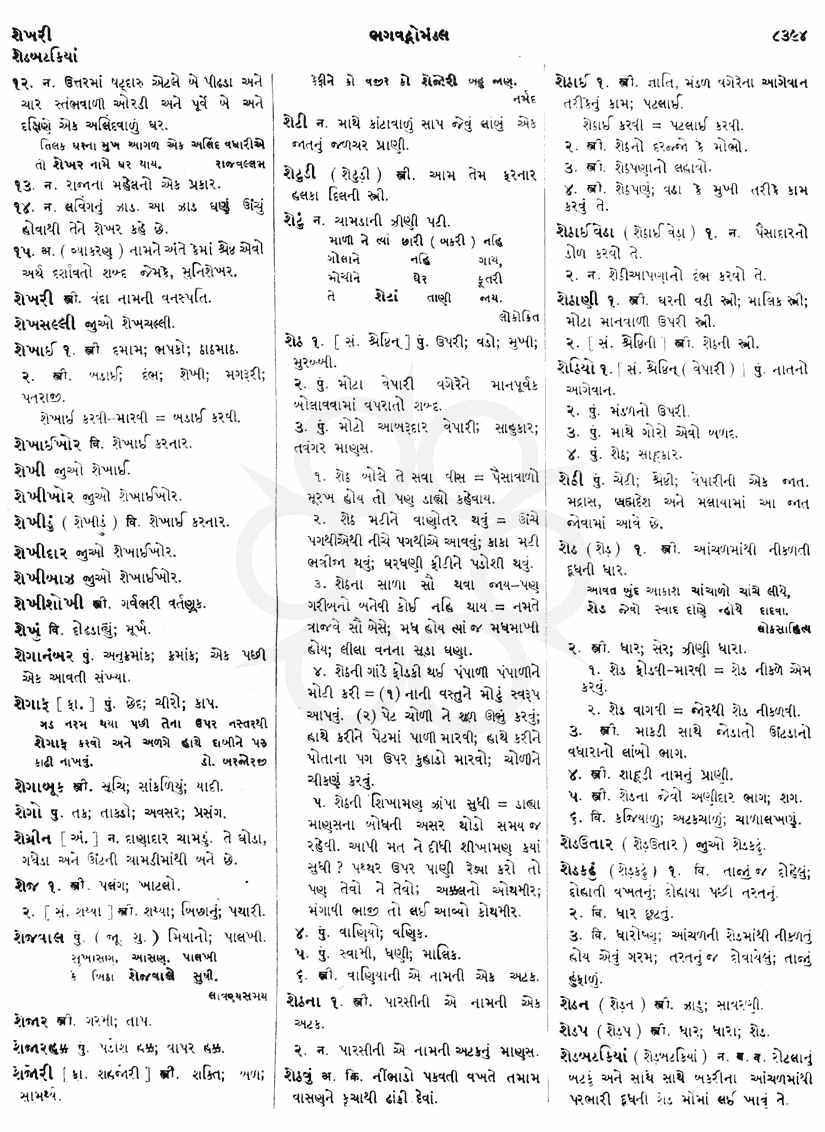 શેખરી
ભગવદ્ગોમંડલ
૮૩૯૪
શેડબટકિયાં
૧૨. ન. ઉત્તરમાં ષટ્દારુ એટલે બે પીઢડા અને
ચાર સ્તંભવાળી ઓરડી અને પૂર્વે બે અને
દક્ષિણે એક અલિંદવાળું ઘર.
તિલક ઘરના મુખ આગળ એક અલિંદ વધારીએ
તો શેખર નામે ઘર થાય. રાજવલ્લભ
૧૩. ન. રાજાના મહેલનો એક પ્રકાર.
૧૪. ન. લવિંગનું ઝાડ. આ ઝાડ ઘણું ઊંચું
હોવાથી તેને શેખર કહે છે.
૧૫. અ. ( વ્યાકરણ ) નામને અંતે કેમાં શ્રેષ્ઠ એવો
અર્થ દર્શાવતો શબ્દ જેમકે, મુનિશેખર.
શેખરી સ્ત્રી. વંદા નામની વનસ્પતિ.
શેખસલ્લી જુઓ શેખચલ્લી.
શેખાઈ ૧. સ્ત્રી. દમામ; ભપકો; ઠાઠમાઠ.
૨. સ્ત્રી. બડાઈ; દંભ; શેખી; મગરૂરી;
પતરાજી.
શેખાઈ કરવી-મારવી = બડાઈ કરવી.
શેખાઈખોર વિ. શેખાઈ કરનાર.
શેખી જુઓ શેખાઈ.
શેખીખોર જુઓ શેખાઈખોર.
શેખીડું ( શેખીડું ) વિ. શેખાઈ કરનાર.
શેખીદાર જુઓ શેખાઈખોર.
શેખીબાઝ જુઓ શેખાઈખોર.
શેખીશોખી સ્ત્રી. ગર્વભરી વર્તણૂક.
શેખું વિ. દોઢડાહ્યું; મૂર્ખ.
શેગાનંબર પું. અનુક્રમાંક; ક્રમાંક; એક પછી
એક આવતી સંખ્યા.
શેગાફ [ ફા. ] પું. છેદ; ચીરો; કાપ.
ગડ નરમ થયા પછી તેના ઉપર નસ્તરથી
શેગાફ કરવો અને અળગે હાથે દાબીને પરુ
કાઢી નાખવું. ડો. બરજોરજી
શેગાબૂક સ્ત્રી. સૂચિ; સાંકળિયું; યાદી.
શેગો પું. તક; તાકડો; અવસર; પ્રસંગ.
શેગ્રીન [ અં. ] ન. દાણાદાર ચામડું. તે ઘોડા,
ગધેડા અને ઊંટની ચામડીમાંથી બને છે.
શેજ ૧. સ્ત્રી. પલંગ; ખાટલો.
૨. [ સં. શય્યા ] સ્ત્રી. શય્યા; બિછાનું; પથારી.
શેજવાલ પું. ( જૂ. ગુ. ) મિયાનો; પાલખી.
સુખાસણ, આસણ, પાલખી
કે બિઠા શેજવાલે સુખી.
લાવણ્યસમય
શેજાર સ્ત્રી. ગરમી; તાપ.
શેજારહક્ક પું. પડોશ હક્ક; વાપર હક્ક.
શેજોરી [ ફા. શહજોરી ] સ્ત્રી. શક્તિ; બળ;
સામર્થ્ય.
કેફીને કો વજીર કો શેન્જેરી બહુ જાણ.
નર્મદ
શેટી ન. માથે કાંટાવાળું સાપ જેવું લાંબું એક
જાતનું જળચર પ્રાણી.
શેટુડી ( શેટુડી ) સ્ત્રી. આમ તેમ ફરનાર
હલકા દિલની સ્ત્રી.
શેટું ન. ચામડાની ઝીણી પટી.
માળી ને ત્યાં છારી ( બકરી ) નહિ
ગોલાને નહિ ગાય,
મોચીને ઘેર કૂતરી
તે શેટાં તાણી જાય.
લોકોક્તિ
શેઠ ૧. [ સં. શ્રેષ્ઠિન્ ] પું. ઉપરી; વડો; મુખી;
મુરબ્બી.
૨. પું. મોટા વેપારી વગેરેને માનપૂર્વક
બોલાવવામાં વપરાતો શબ્દ.
૩. પું. મોટો આબરૂદાર વેપારી; સાહુકાર;
તવંગર માણસ.
૧. શેઠ બોલે તે સવા વીસ = પૈસાવાળો
મૂરખ હોય તો પણ ડાહ્યો કહેવાય.
૨. શેઠ મટીને વાણોતર થવું = ઊંચે
પગથીએથી નીચે પગથીએ આવવું; કાકા મટી
ભત્રીજા થવું; ઘરધણી ફીટીને પડોશી થવું.
૩. શેઠના સાળા સૌ થવા જાય-પણ
ગરીબનો બનેવી કોઈ નહિ થાય = નમતે
ત્રાજવે સૌ બેસે; મધ હોય ત્યાં જ મધમાખી
હોય; લીલા વનના સૂડા ઘણા.
૪. શેઠની ગાંડે ફોડકી થઈ પંપાળી પંપાળીને
મોટી કરી = (૧) નાની વસ્તુને મોટું સ્વરૂપ
આપવું. (૨) પેટ ચોળી ને શૂળ ઊભું કરવું;
હાથે કરીને પેટમાં પાળી મારવી; હાથે કરીને
પોતાના પગ ઉપર કુહાડો મારવો; ચોળીને
ચીકણું કરવું.
૫. શેઠની શિખામણ ઝાંપા સુધી = ડાહ્યા
માણસના બોધની અસર થોડો સમય જ
રહેવી. આપી મત ને દીધી શીખામણ ક્યાં
સુધી ? પથ્થર ઉપર પાણી રેડ્યા કરો તો
પણ તેવો ને તેવો; અક્કલનો ઓથમીર;
મંગાવી ભાજી તો લઈ આવ્યો કોથમીર.
૪. પું. વાણિયો; વણિક.
૫. પું. સ્વામી, ધણી; માલિક.
૬. સ્ત્રી. વાણિયાની એ નામની એક અટક.
શેઠના ૧. સ્ત્રી. પારસીની એ નામની એક
અટક.
૨. ન. પારસીની એ નામની અટકનું માણસ.
શેઠવું અ. ક્રિ. નીંભાડો પકવતી વખતે તમામ
વાસણને કૂચાથી ઢાંકી દેવાં.
શેઠાઈ ૧. સ્ત્રી. જ્ઞાતિ, મંડળ વગેરેના આગેવાન
તરીકેનું કામ; પટલાઈ.
શેઠાઈ કરવી = પટલાઈ કરવી.
૨. સ્ત્રી. શેઠનો દરજ્જો કે મોભો.
૩. સ્ત્રી. શેઠપણાનો લહાવો.
૪. સ્ત્રી. શેઠપણું; વડા કે મુખી તરીકે કામ
કરવું તે.
શેઠાઈવેડા ( શેઠાઈવેડા ) ૧. ન. પૈસાદારનો
ડોળ કરવો તે.
૨. ન. શેઠીઆપણાનો દંભ કરવો તે.
શેઠાણી ૧. સ્ત્રી. ઘરની વડી સ્ત્રી; માલિક સ્ત્રી;
મોટા માનવાળી ઉપરી સ્ત્રી.
૨. [ સં. શ્રેષ્ઠિની ] સ્ત્રી. શેઠની સ્ત્રી.
શેઠિયો ૧. [ સં. શ્રેષ્ઠિન્ ( વેપારી ) ] પું. નાતનો
આગેવાન.
૨. પું. મંડળનો ઉપરી.
૩. પું. માથે ગોરો એવો બળદ.
૪. પું. શેઠ; સાહૂકાર.
શેઠી પું. ચેટી; શ્રેષ્ઠી; વેપારીની એક જાત.
મદ્રાસ, બ્રહ્મદેશ અને મલાયામાં આ જાત
જોવામાં આવે છે.
શેડ ( શૅડ ) ૧. સ્ત્રી. આંચળમાંથી નીકળતી
દૂધની ધાર.
આવત બુંદ આકાશ ચાંચાળો ચાંચે લીયે,
શેડ જેવો સ્વાદ દાણે ન્હોયે દાદવા.
લોકસાહિત્ય
૨. સ્ત્રી. ધાર; સેર; ઝીણી ધારા.
૧. શેડ ફોડવી-મારવી = શેડ નીકળે એમ
કરવું.
૨. શેડ વાગવી = જોરથી શેડ નીકળવી.
૩. સ્ત્રી. માકડી સાથે જોડાતો ઊંટડાનો
વધારાનો લાંબો ભાગ.
૪. સ્ત્રી. શાહૂડી નામનું પ્રાણી.
૫. સ્ત્રી. શેડના જેવો અણીદાર ભાગ; શગ.
૬. વિ. કજિયાળુ; અટકચાળું; ચાળાલખણું.
શેડઉતાર ( શૅડઉતાર ) જુઓ શેડકઢું.
શેડકઢું ( શૅડકઢું ) ૧. વિ. તાજું જ દોહેલું;
દોહાતી વખતનું; દોહાયા પછી તરતનું.
૨. વિ. ધાર છૂટતું.
૩. વિ. ધારોષ્ણ; આંચળની શેડમાંથી નીકળતું
હોય એવું ગરમ; તરતનું જ દોવાયેલું; તાજું
હુંફાળું.
શેડન ( શૅડન ) સ્ત્રી. ઝાડુ; સાવરણી.
શેડપ ( શૅડપ ) સ્ત્રી. ધાર; ધારા; શેડ.
શેડબટકિયાં ( શૅડબટકિયાં ) ન. બ. વ. રોટલાનું
બટકું અને સાથે સાથે બકરીના આંચળમાંથી
પરભારી દૂધની શેડ મોંમાં લઈ ખાવું તે.